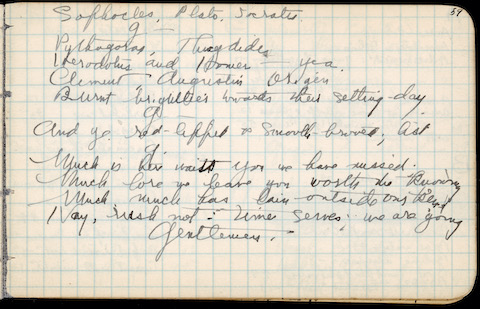 59
Sophocles, Plato, Socrates,
g —
Pythagoras, Thucydides
Herodotus and Homer — yea.
Clement Augustin Origen
Burnt brightlier towards their setting-day
g —
And ye red-lipped & smooth-browed; list
g.
Much is here waits you we have missed.
Much lore we leave you worth the knowing
Much much has lain outside our ken
Nay, rush not: time serves: we are going
Gentlemen. -